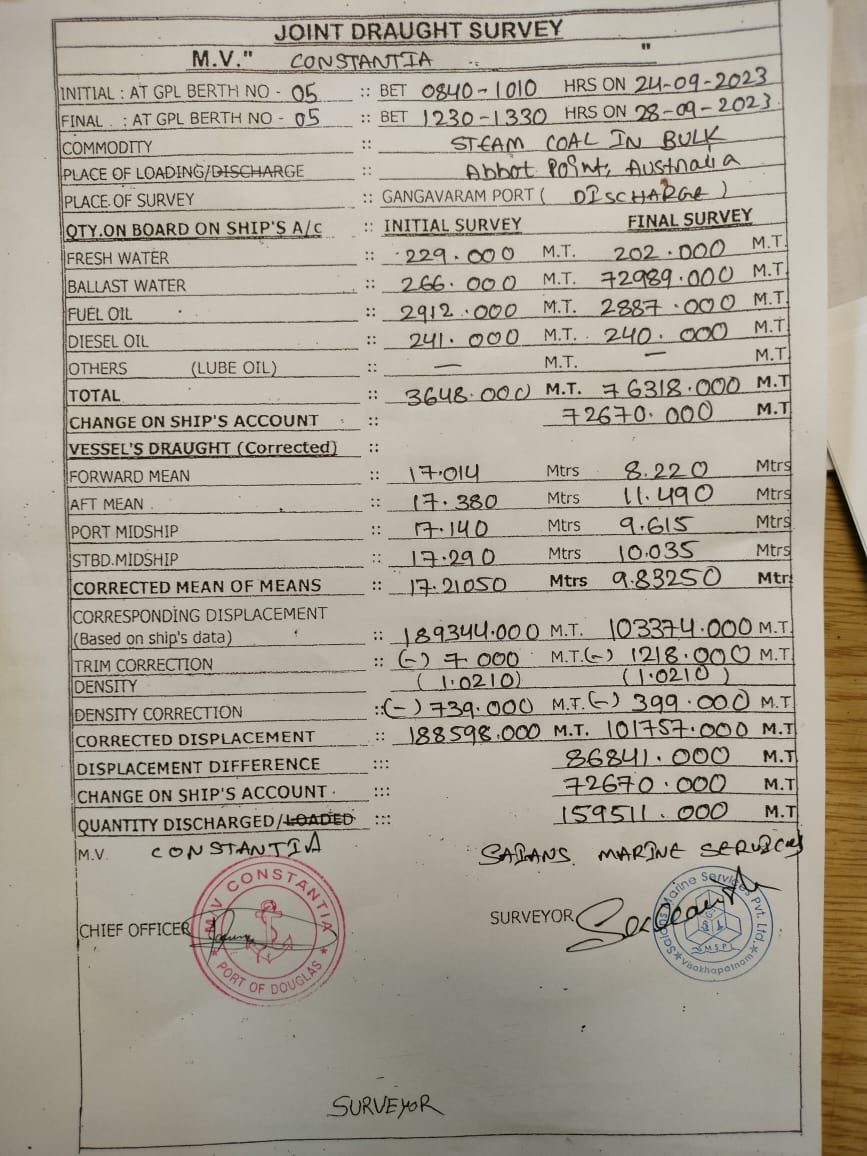 JOINT DRAUGHT SURVEY
M.V." CONSTANTIA "
INITIAL : AT GPL BERTH NO - 05 :: BET 0840-1010 HRS ON 24-09-2023
FINAL : AT GPL BERTH NO - 05 :: BET 1230-1330 HRS ON 28-09-2023
COMMODITY :: STEAM COAL IN BULK
PLACE OF LOADING/DISCHARGE :: Abbot Point, Australia
PLACE OF SURVEY :: GANGAVARAM PORT ( DISCHARGE )
QTY.ON BOARD ON SHIP'S A/C :: INITIAL SURVEY FINAL SURVEY
FRESH WATER :: 229.000 M.T. 202.000 M.T.
BALLAST WATER :: 266.000 M.T. 72989.000 M.T.
FUEL OIL :: 2912.000 M.T. 2887.000 M.T.
DIESEL OIL :: 241.000 M.T. 240.000 M.T.
OTHERS (LUBE OIL) :: — M.T. — M.T.
TOTAL :: 3648.000 M.T. 76318.000 M.T
CHANGE ON SHIP'S ACCOUNT :: 72670.000 M.T
VESSEL'S DRAUGHT (Corrected) ::
FORWARD MEAN :: 17.014 Mtrs 8.220 Mtrs
AFT MEAN :: 17.380 Mtrs 11.490 Mtrs
PORT MIDSHIP :: 17.140 Mtrs 9.615 Mtrs
STBD.MIDSHIP :: 17.290 Mtrs 10.035 Mtrs
CORRECTED MEAN OF MEANS :: 17.21050 Mtrs 9.83250 Mtr
CORRESPONDING DISPLACEMENT
(Based on ship's data) :: 189344.000 M.T. 103374.000 M.T.
TRIM CORRECTION :: (-) 7.000 M.T. (-) 1218.000 M.T
DENSITY (1.0210) (1.0210)
DENSITY CORRECTION :: (-) 739.000 M.T. (-) 399.000 M.T
CORRECTED DISPLACEMENT :: 188598.000 M.T. 101757.000 M.T
DISPLACEMENT DIFFERENCE ::: 86841.000 M.T
CHANGE ON SHIP'S ACCOUNT ::: 72670.000 M.T
QUANTITY DISCHARGED/LOADED ::: 159511.000 M.T
M.V. CONSTANTIA SAIANS MARINE SERVICES
CHIEF OFFICER SURVEYOR
M.V CONSTANTIA
PORT OF DOUGLAS
Marine Services Pvt. Ltd.
S M S P L
Visakhapatnam
SURVEYOR